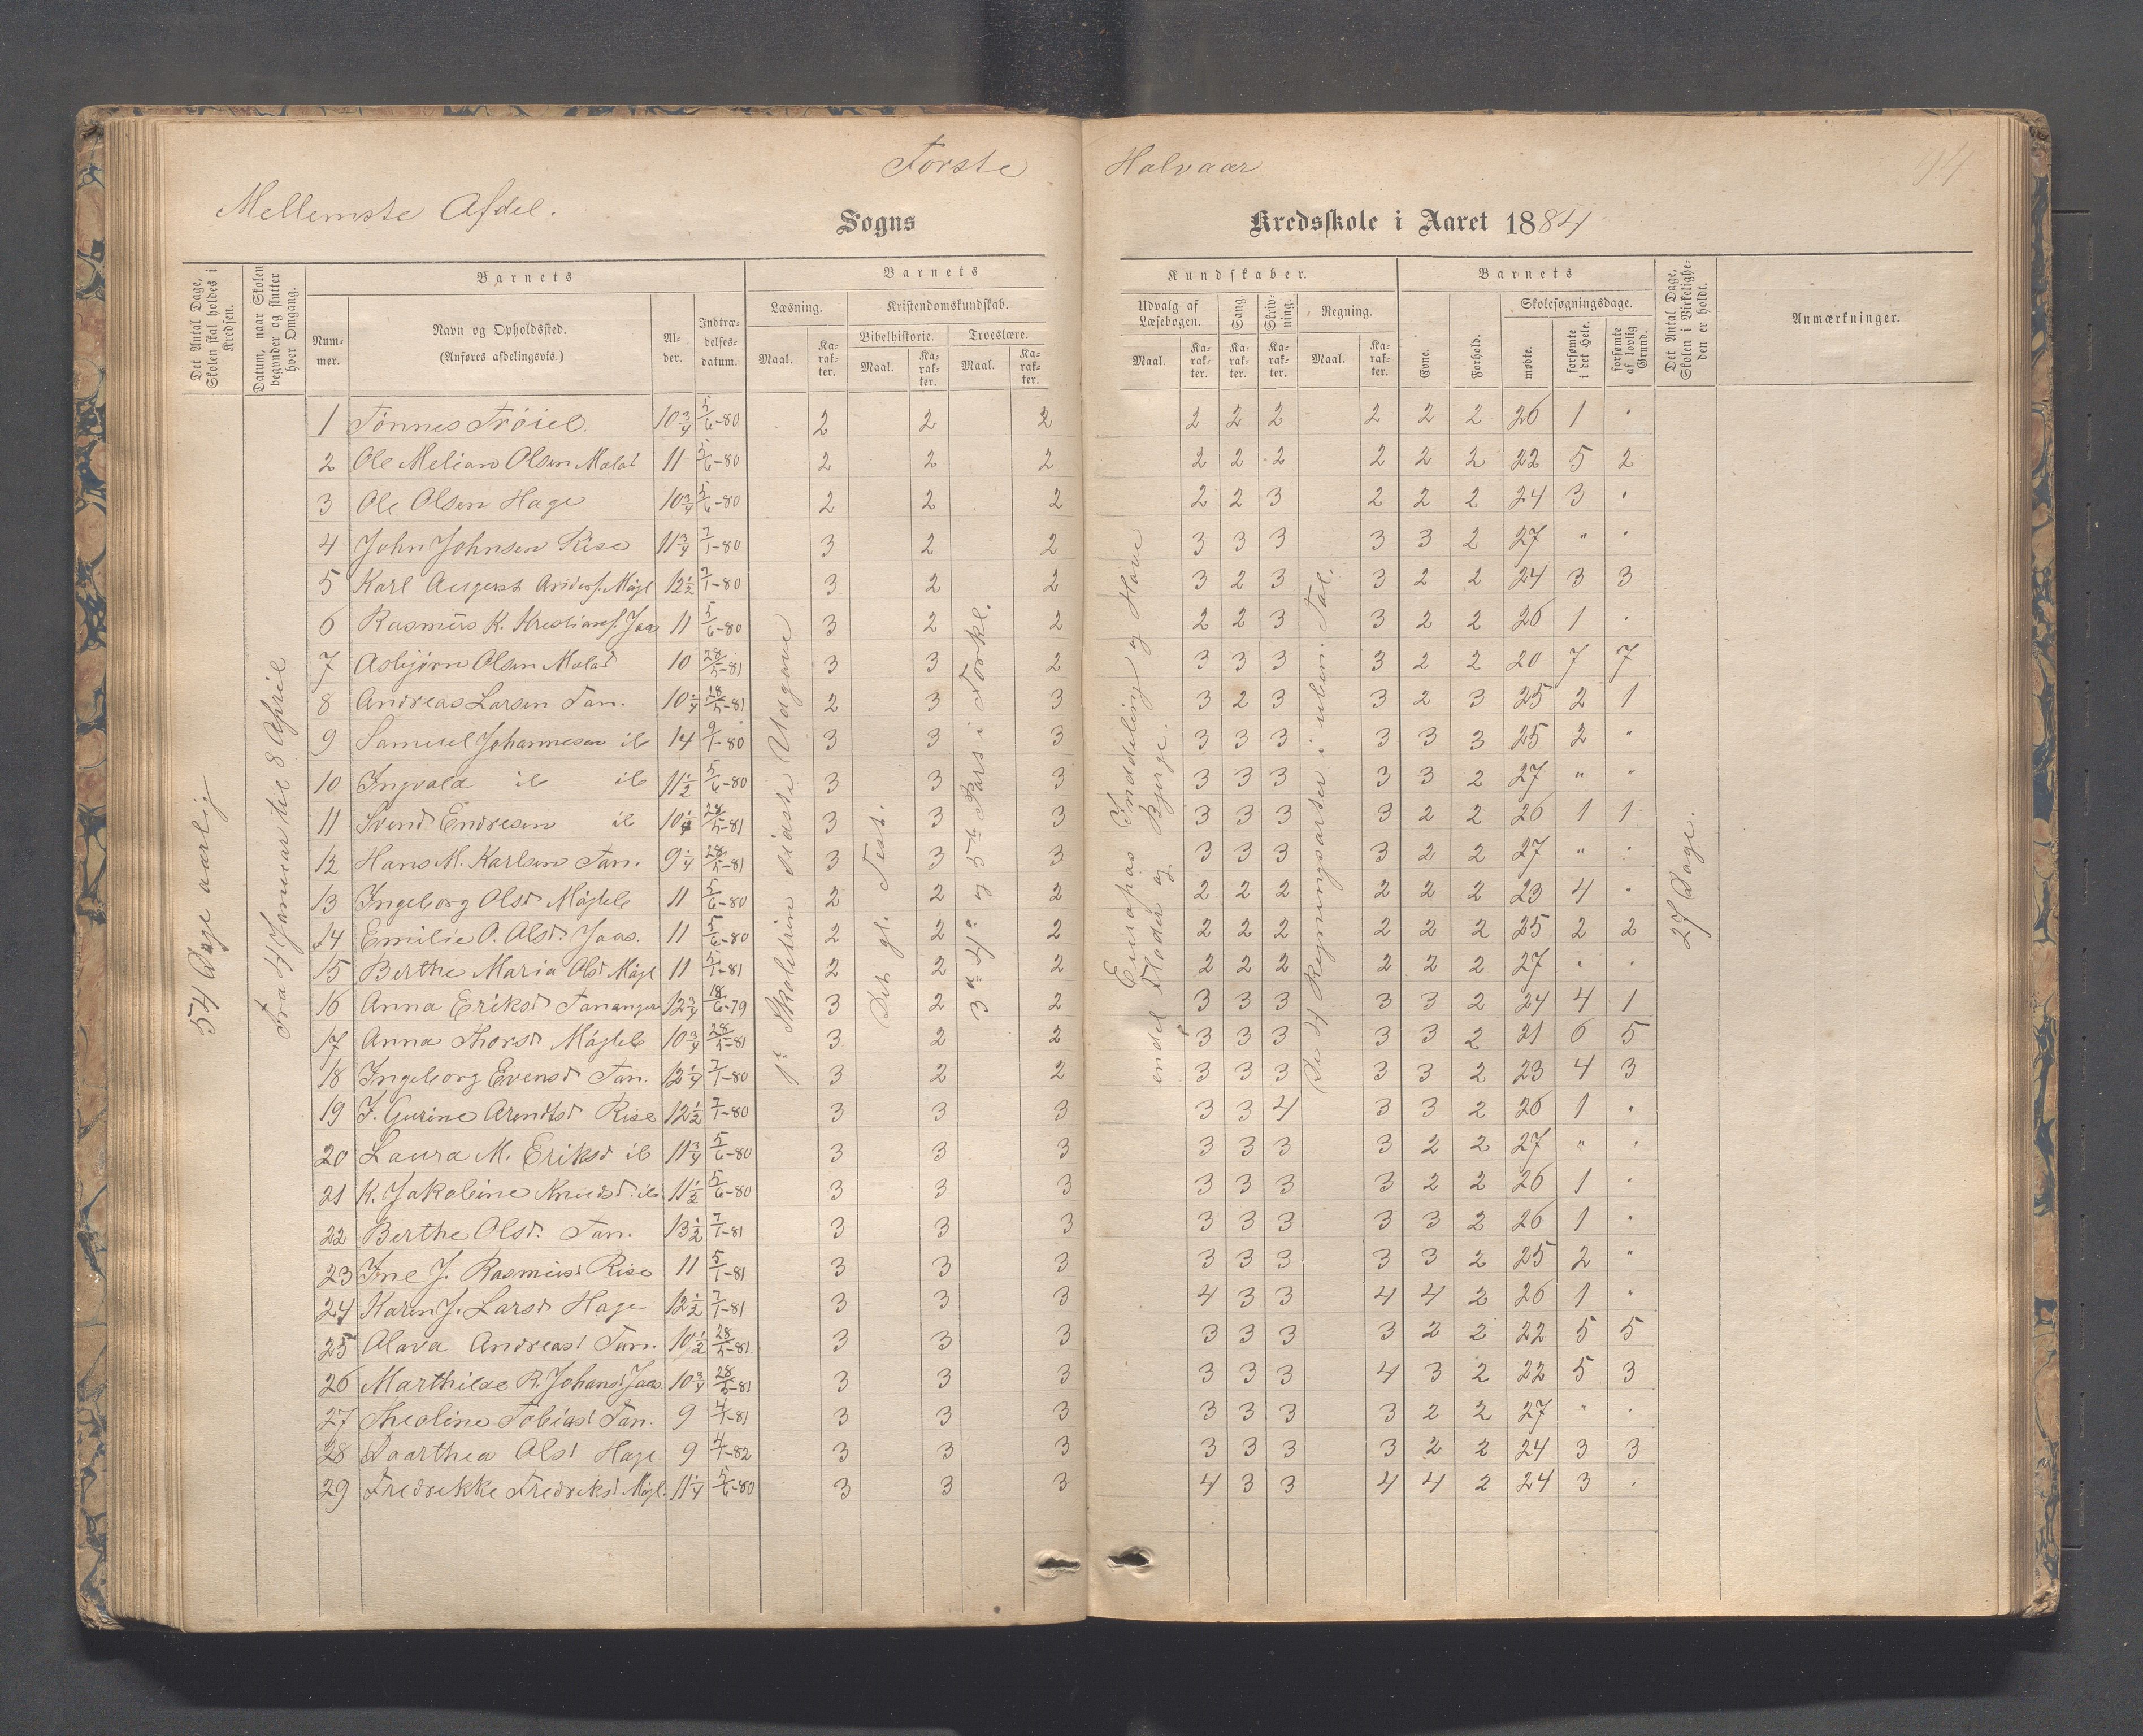 Første Halvaar
94
Mellemste Afdel.
Sogns Kredsskole i Aaret 1884
Det Antal Dage, Skolen skal holdes i Kredsen.
Datum, naar Skolen begynder og slutter hver Omgang.
Barnets
Nummer.
Navn og Opholdssted. (Anføres afdelingsvis.)
Alder.
Indtrædelsesdatum.
Barnets Kundskaber.
Læsning.
Maal.
Karakter.
Kristendomskundskab.
Bibelhistorie.
Maal.
Karakter.
Troeslære.
Maal.
Karakter.
Udvalg af Læsebogen.
Maal.
Karakter.
Sang.
Karakter.
Skrivning.
Karakter.
Regning.
Maal.
Karakter.
Barnets
Evne.
Forhold.
Skolesøgningsdage.
mødte.
forsømte i det Hele.
forsømte af lovlig Grund.
Det Antal Dage, Skolen i Virkeligheden er holdt.
Anmærkninger.
54 Dage aarlig
Fra 4 Januar til 8 April
1ste Skoletrin sidste Udgave
Det gl. Test.
3d 4de og 5te Pars i Forkl.
Europas Inddeling og Have
endel Floder og Bjerge.
De 4 Regningsarter i uben. Tal.
27 Dage.
1 Tønnes Trøiel. 10 3/4 5/6-80 2 2 2 2 2 2 2 2 2 26 1 "
2 Ole Melian Olsen Mælad 11 5/6-80 2 2 2 2 2 2 2 2 2 22 5 2
3 Ole Olsen Hage 10 3/4 5/6-80 2 2 2 2 2 3 2 2 2 24 3 "
4 John Johnsen Rise 11 3/4 7/1-80 3 2 2 3 3 3 3 3 2 27 " "
5 Karl August Andersf. Møgl 12 1/2 7/1-80 3 2 2 3 2 3 3 2 2 24 3 3
6 Rasmus K. Kristiansf. Jaas 11 5/6-80 3 2 2 2 2 3 3 2 2 26 1 "
7 Asbjørn Olsen Mælad 10 28/5-81 3 3 2 3 3 3 3 2 2 20 7 7
8 Andreas Larsen Tan. 10 1/4 28/5-81 2 3 3 3 2 3 3 2 3 25 2 1
9 Samuel Johannesen ib 14 9/1-80 3 3 3 3 3 3 3 3 3 25 2 "
10 Ingvald ib ib 11 1/2 5/6-80 3 3 3 3 3 3 3 3 2 27 " "
11 Svend Endresen ib 10 1/4 28/5-81 3 3 3 3 3 3 3 2 2 26 1 1
12 Hans M. Karlsen Tan. 9 1/4 28/5-81 3 3 3 3 3 3 3 2 2 27 " "
13 Ingeborg Olsd Møgleb 11 5/6-80 2 2 2 2 2 2 2 2 2 23 4 "
14 Emilie O. Olsd. Jaas. 11 5/6-80 2 2 2 2 2 2 2 2 2 25 2 2
15 Berthe Maria Olsd Møgl 11 5/1-81 2 2 2 2 2 2 2 2 2 27 " "
16 Anna Eriksd Tananger 12 3/4 18/6-79 3 2 2 3 3 3 3 3 2 24 4 1
17 Anna Thorsd Møgleb 10 3/4 28/5-81 3 2 2 3 3 3 3 3 2 21 6 5
18 Ingeborg Evensd Tan. 12 1/4 7/1-80 3 2 2 3 3 3 3 3 2 23 4 3
19 J. Gurine Arndtsd Rise 12 1/2 7/1-80 3 3 3 3 3 4 3 3 2 26 1 "
20 Laura M. Eriksd ib 11 3/4 5/6-80 3 3 3 3 3 3 3 2 2 27 " "
21 K. Jakobine Knudsd. ib. 11 1/2 5/6-80 3 3 3 3 3 3 3 2 2 26 1 "
22 Berthe Olsd. Tan. 13 1/2 7/1-81 3 3 3 3 3 3 3 3 2 26 1 "
23 Ine J. Rasmusd Rise 11 5/1-81 3 3 3 3 3 3 3 3 2 25 2 "
24 Karen J. Larsd Hage 12 1/2 7/1-81 3 3 3 4 3 3 4 4 2 26 1 "
25 Olava Andreasd Tan. 10 1/2 28/5-81 3 3 3 3 3 3 3 2 2 22 5 5
26 Marthilde R. Johansd Jaas. 10 3/4 28/5-81 3 3 3 3 3 3 4 3 2 22 5 3
27 Theoline Tobiasd Tan. 9 4/1-81 3 3 3 3 3 3 3 2 2 27 " "
28 Daarthea Olsd Hage 9 4/1-82 3 3 3 3 3 3 3 2 2 24 3 3
29 Fredrikke Fredriksd Møgl. 11 1/4 5/6-80 3 3 3 4 3 3 4 4 2 24 3 "